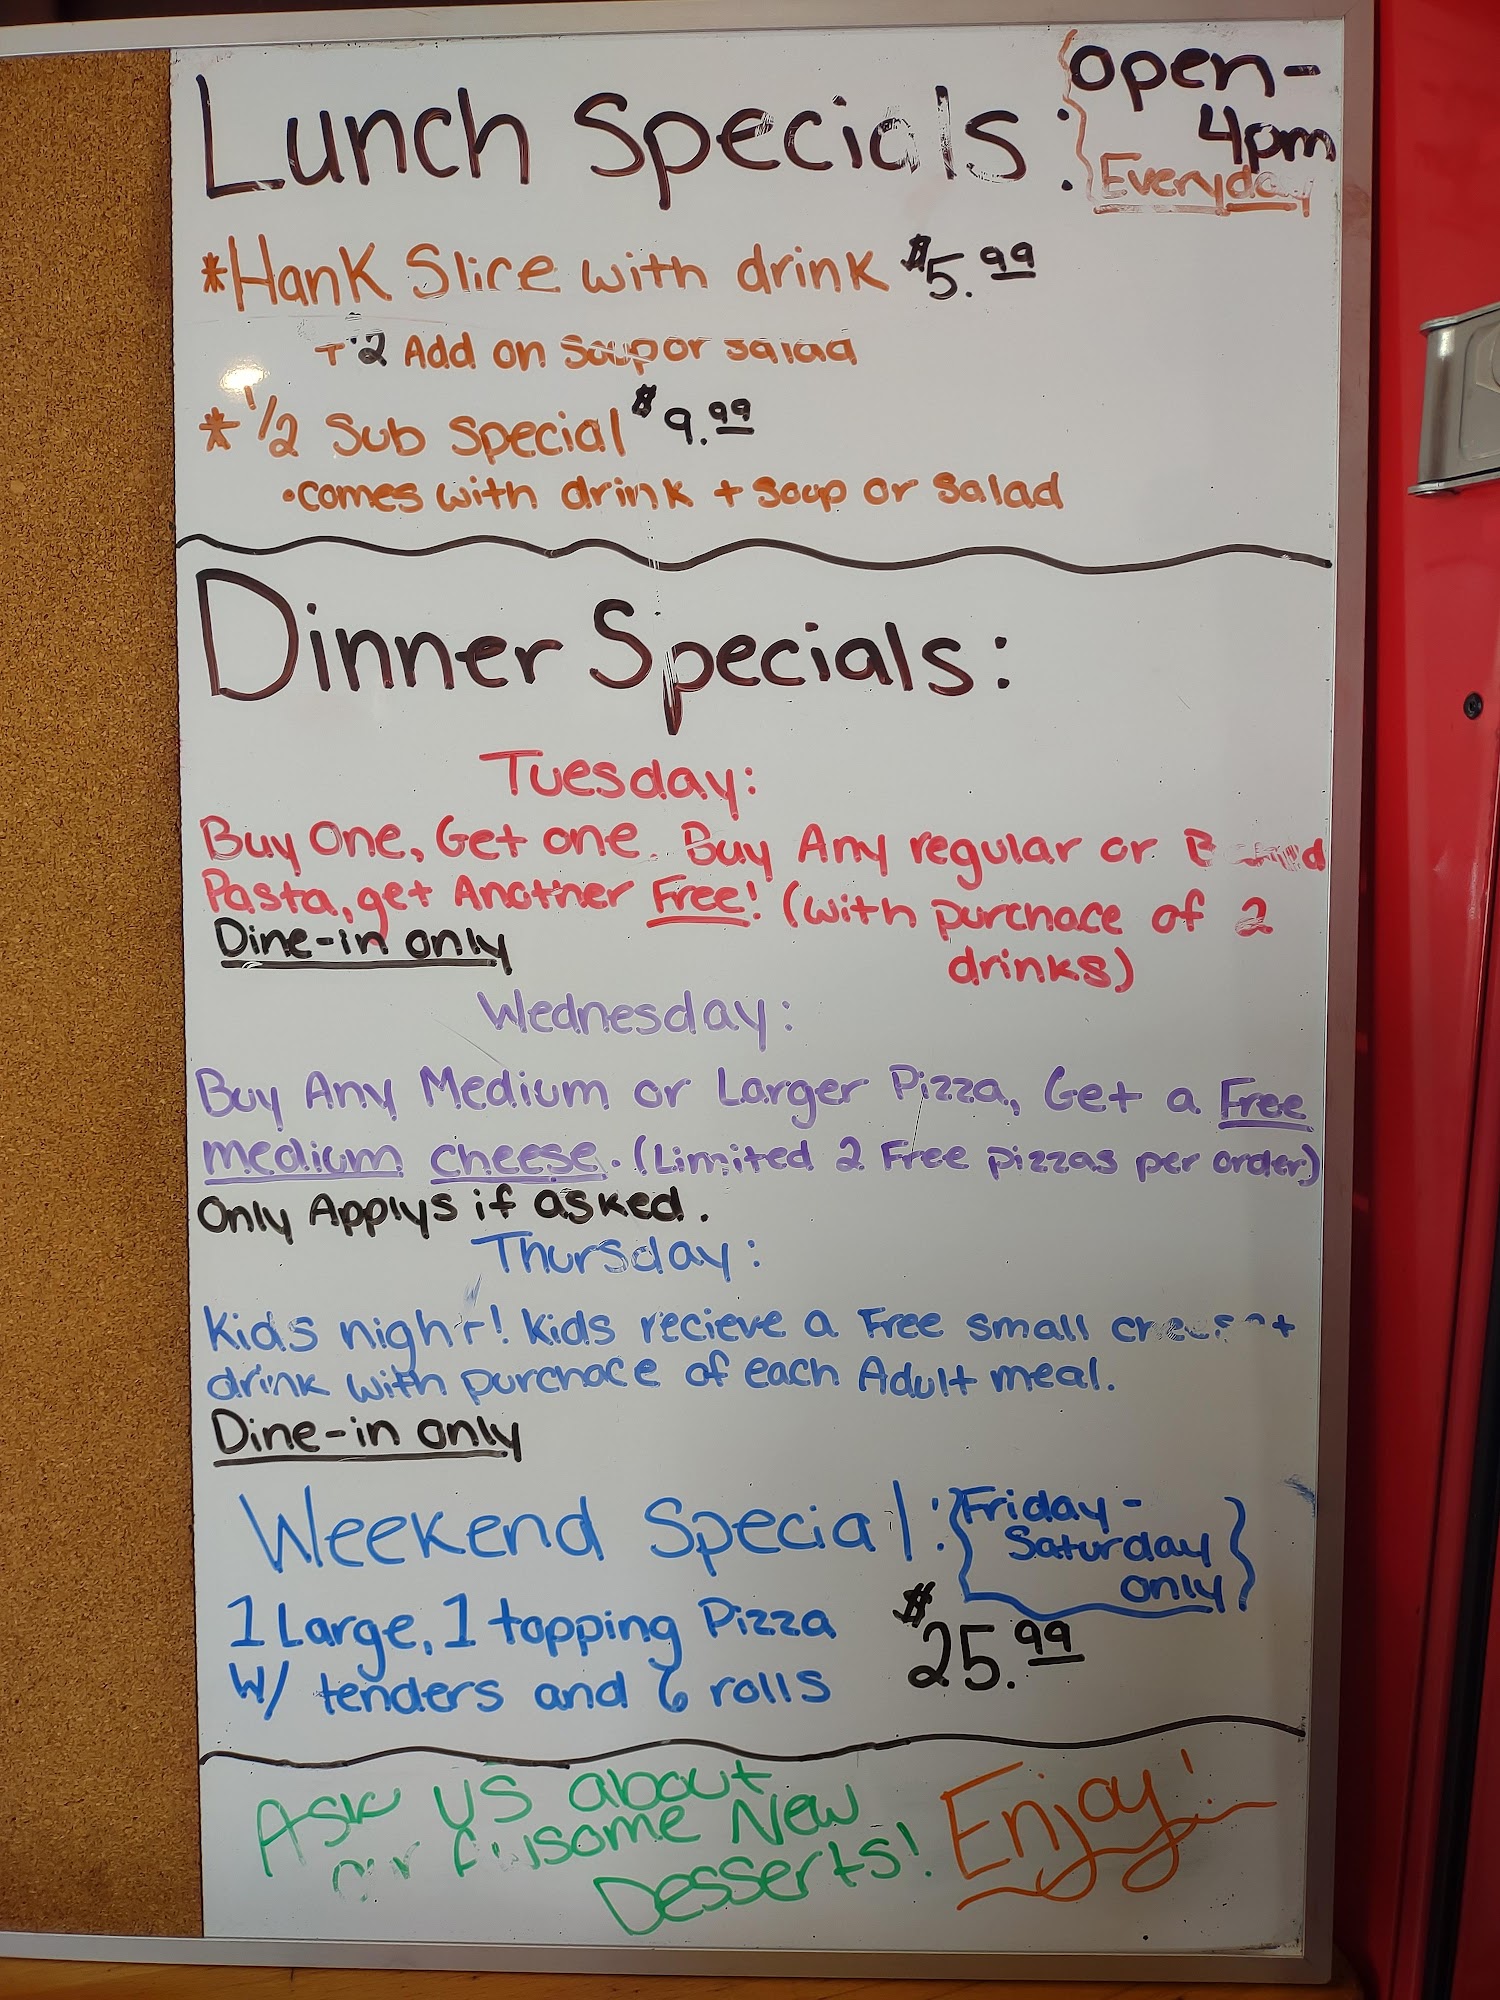 Lunch Specials:
open-
4pm
Everyday
*Hank Slice with drink $5.99
+ $2 Add on Soup or salad
*1/2 Sub Special $9.99
•comes with drink + Soup or Salad
Dinner Specials:
Tuesday:
Buy One, Get one. Buy Any regular or
Pasta, get Another Free! (with purchace of 2
drinks)
Dine-in only
Wednesday:
Buy Any Medium or Larger Pizza, Get a Free
medium cheese. (Limited 2 Free pizzas per order)
Only Applys if asked.
Thursday:
Kids night! Kids recieve a Free small cheese +
drink with purchace of each Adult meal.
Dine-in only
Weekend Special:
Friday-
Saturday
only
1 Large, 1 topping Pizza
W/ tenders and 6 rolls
$25.99
Ask us about
our Awsome New
Desserts!
Enjoy!